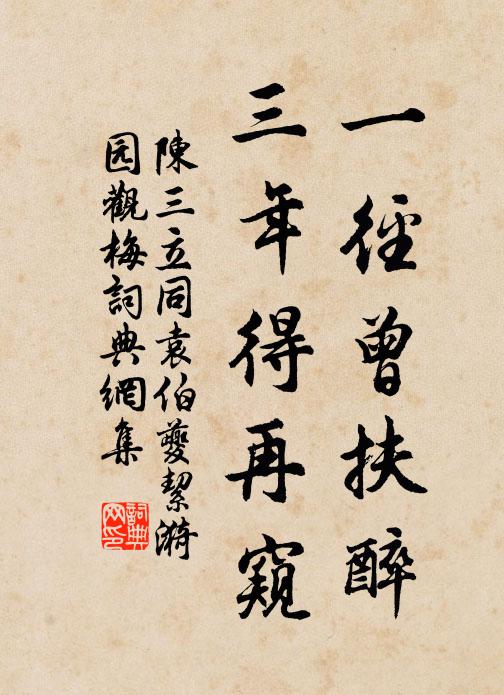 一徑曾扶醉
三年得再窺
陳三立同袁伯夔絜漪
园觀梅詞典網集
詞典
网印